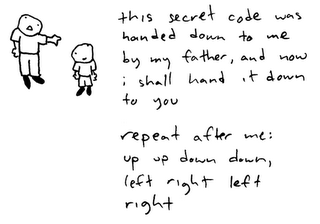 this secret code was
handed down to me
by my father, and now
i shall hand it down
to you
repeat after me:
up up down down,
left right left
right